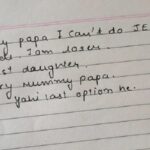 y papa I can't do JE
I am loser.
st daughter.
ry mummy papa.
Yahi last option he.